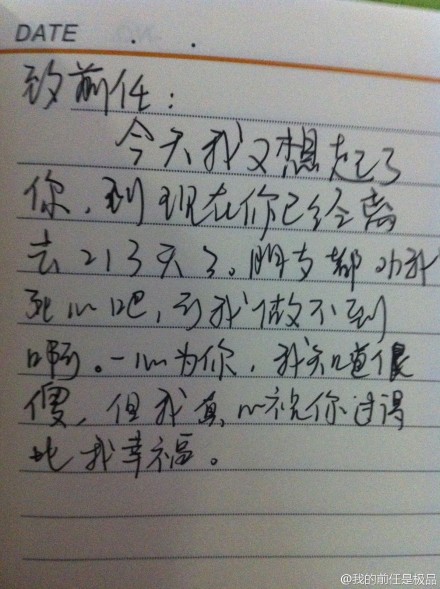 DATE . .
致前任：
今天我又想起了
你，到现在你已经离
去213天了。朋友都劝我
死心吧，可我做不到
啊。一心为你，我知道很
傻，但我真心祝你过得
比我幸福。
@我的前任是极品